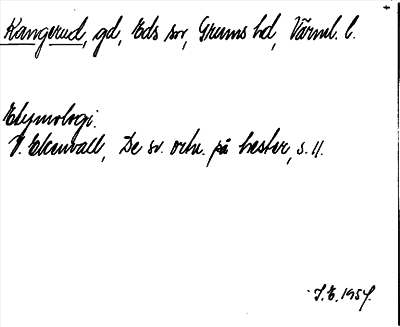 Kangerud, gd, Eds sn, Grums hd, Värml. l.
Etymologi.
V. Ekenvall, De sv. ortn. på hester, s. 11.
J.E. 1957.